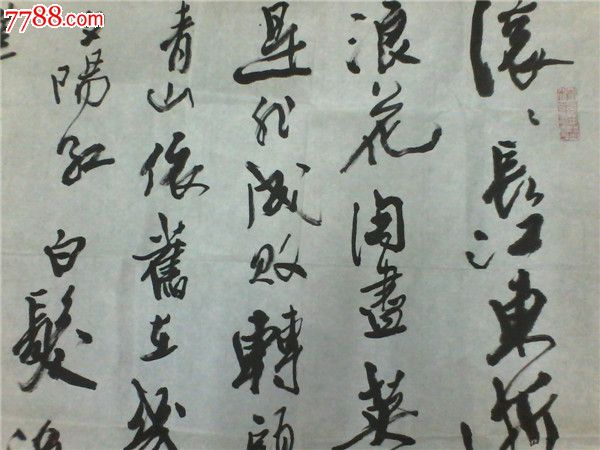 7788.com
中国收藏热线
滚〻長江東逝
浪花淘盡英
是非成敗轉頭
青山依舊在幾
夕陽紅白髮